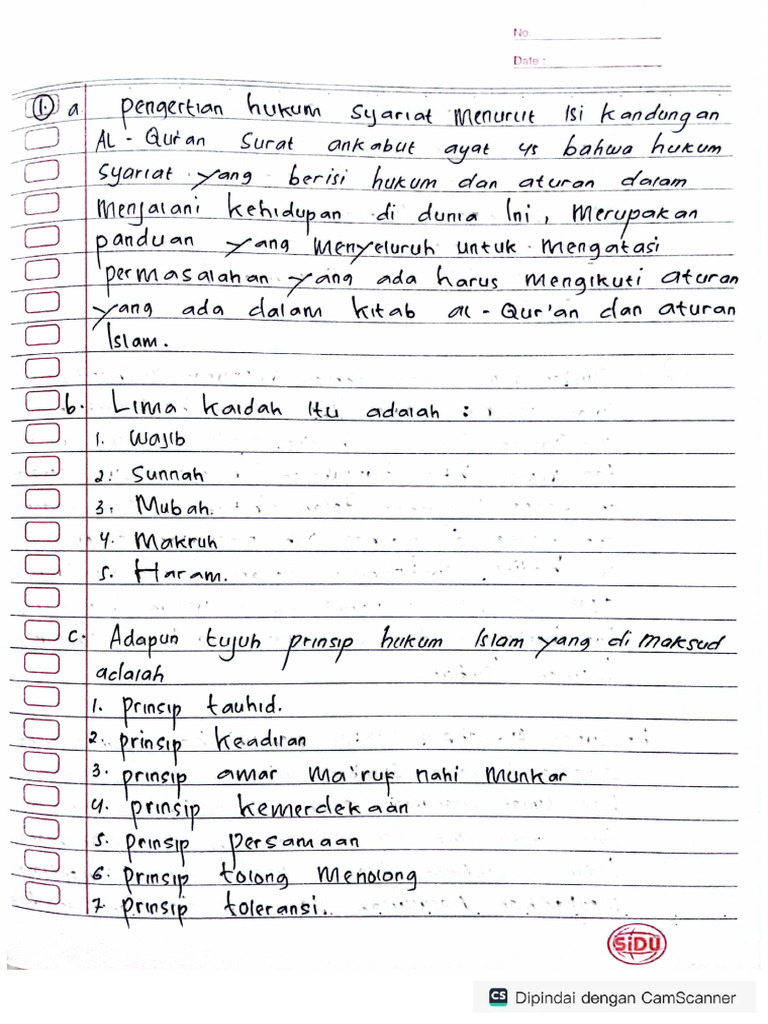 No.
Date :
1. a. pengertian hukum syariat menurut isi kandungan
AL - Qur'an surat ankabut ayat 45 bahwa hukum
syariat yang berisi hukum dan aturan dalam
menjalani kehidupan di dunia ini, merupakan
panduan yang menyeluruh untuk mengatasi
permasalahan yang ada harus mengikuti aturan
yang ada dalam kitab al - Qur'an dan aturan
Islam.
b. Lima kaidah itu adalah :
1. Wajib
2. Sunnah
3. Mubah.
4. Makruh
5. Haram.
c. Adapun tujuh prinsip hukum Islam yang di maksud
adalah
1. prinsip tauhid.
2. prinsip keadilan
3. prinsip amar ma'ruf nahi munkar
4. prinsip kemerdekaan
5. prinsip persamaan
6. prinsip tolong menolong
7. prinsip toleransi.
SiDU
CS Dipindai dengan CamScanner